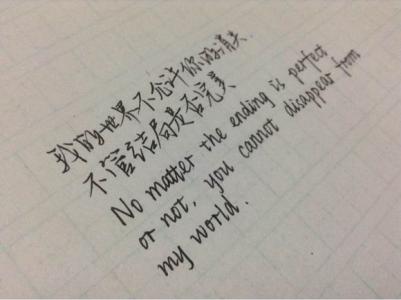 我的世界不允许你的消失
不管结局是否完美
No matter the ending is perfect
or not, you cannot disappear from
my world.